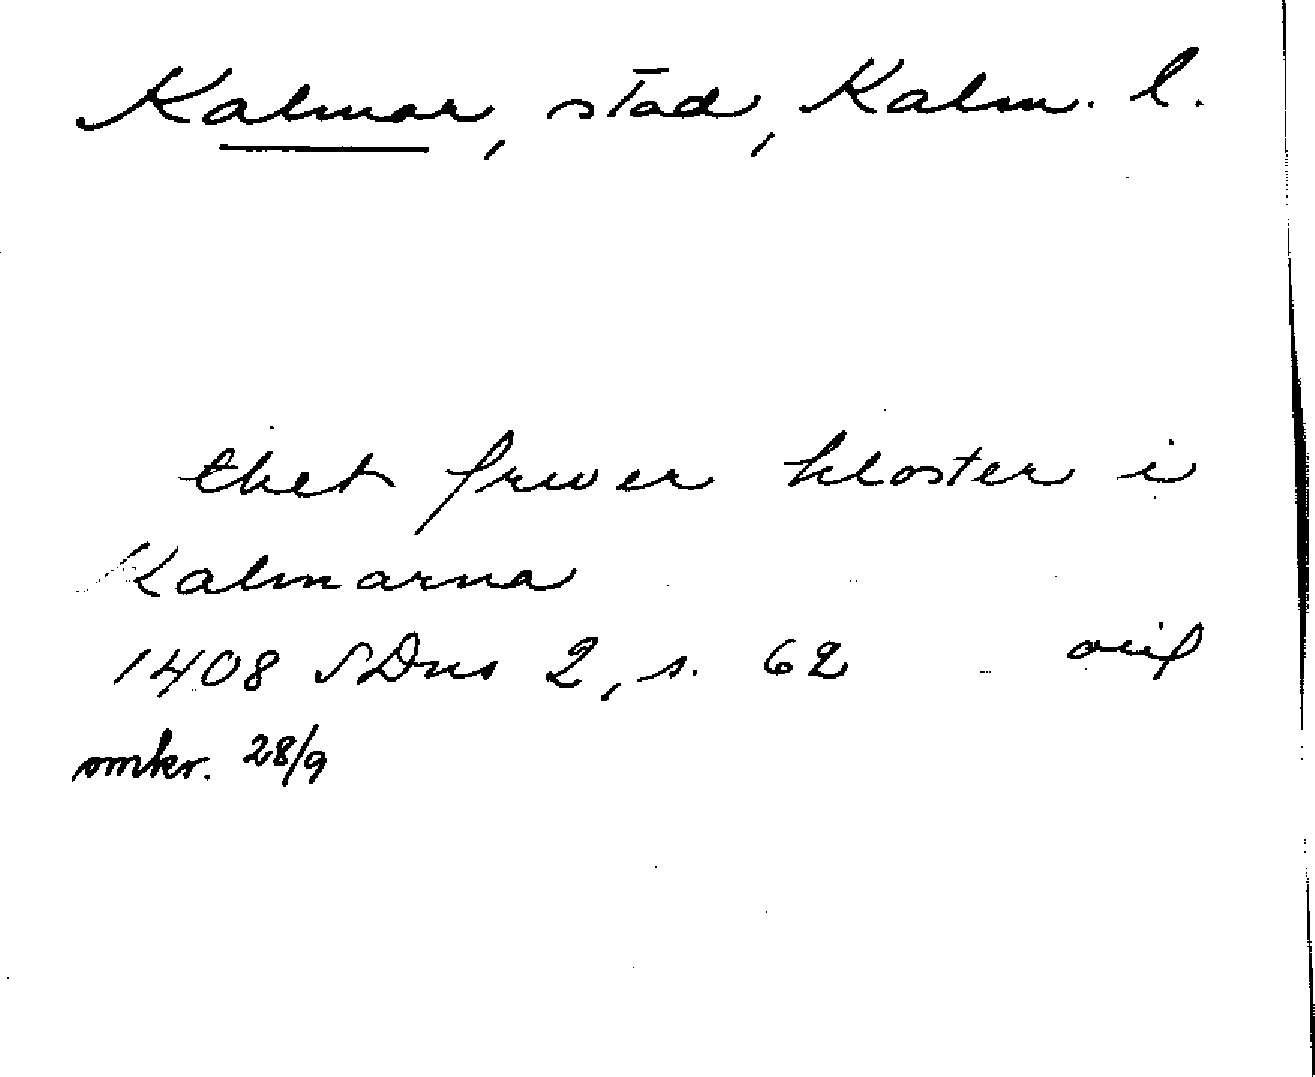 Kalmar, stad, Kalm. l.
thet frwer kloster i
Kalmarna
1408 SDns 2, s. 62 orig
omkr. 28/9